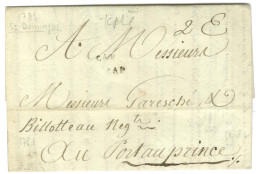 2
A Messieurs
CAP
Messieurs Garesché &
Billotteau Negts.
Au Portauprince